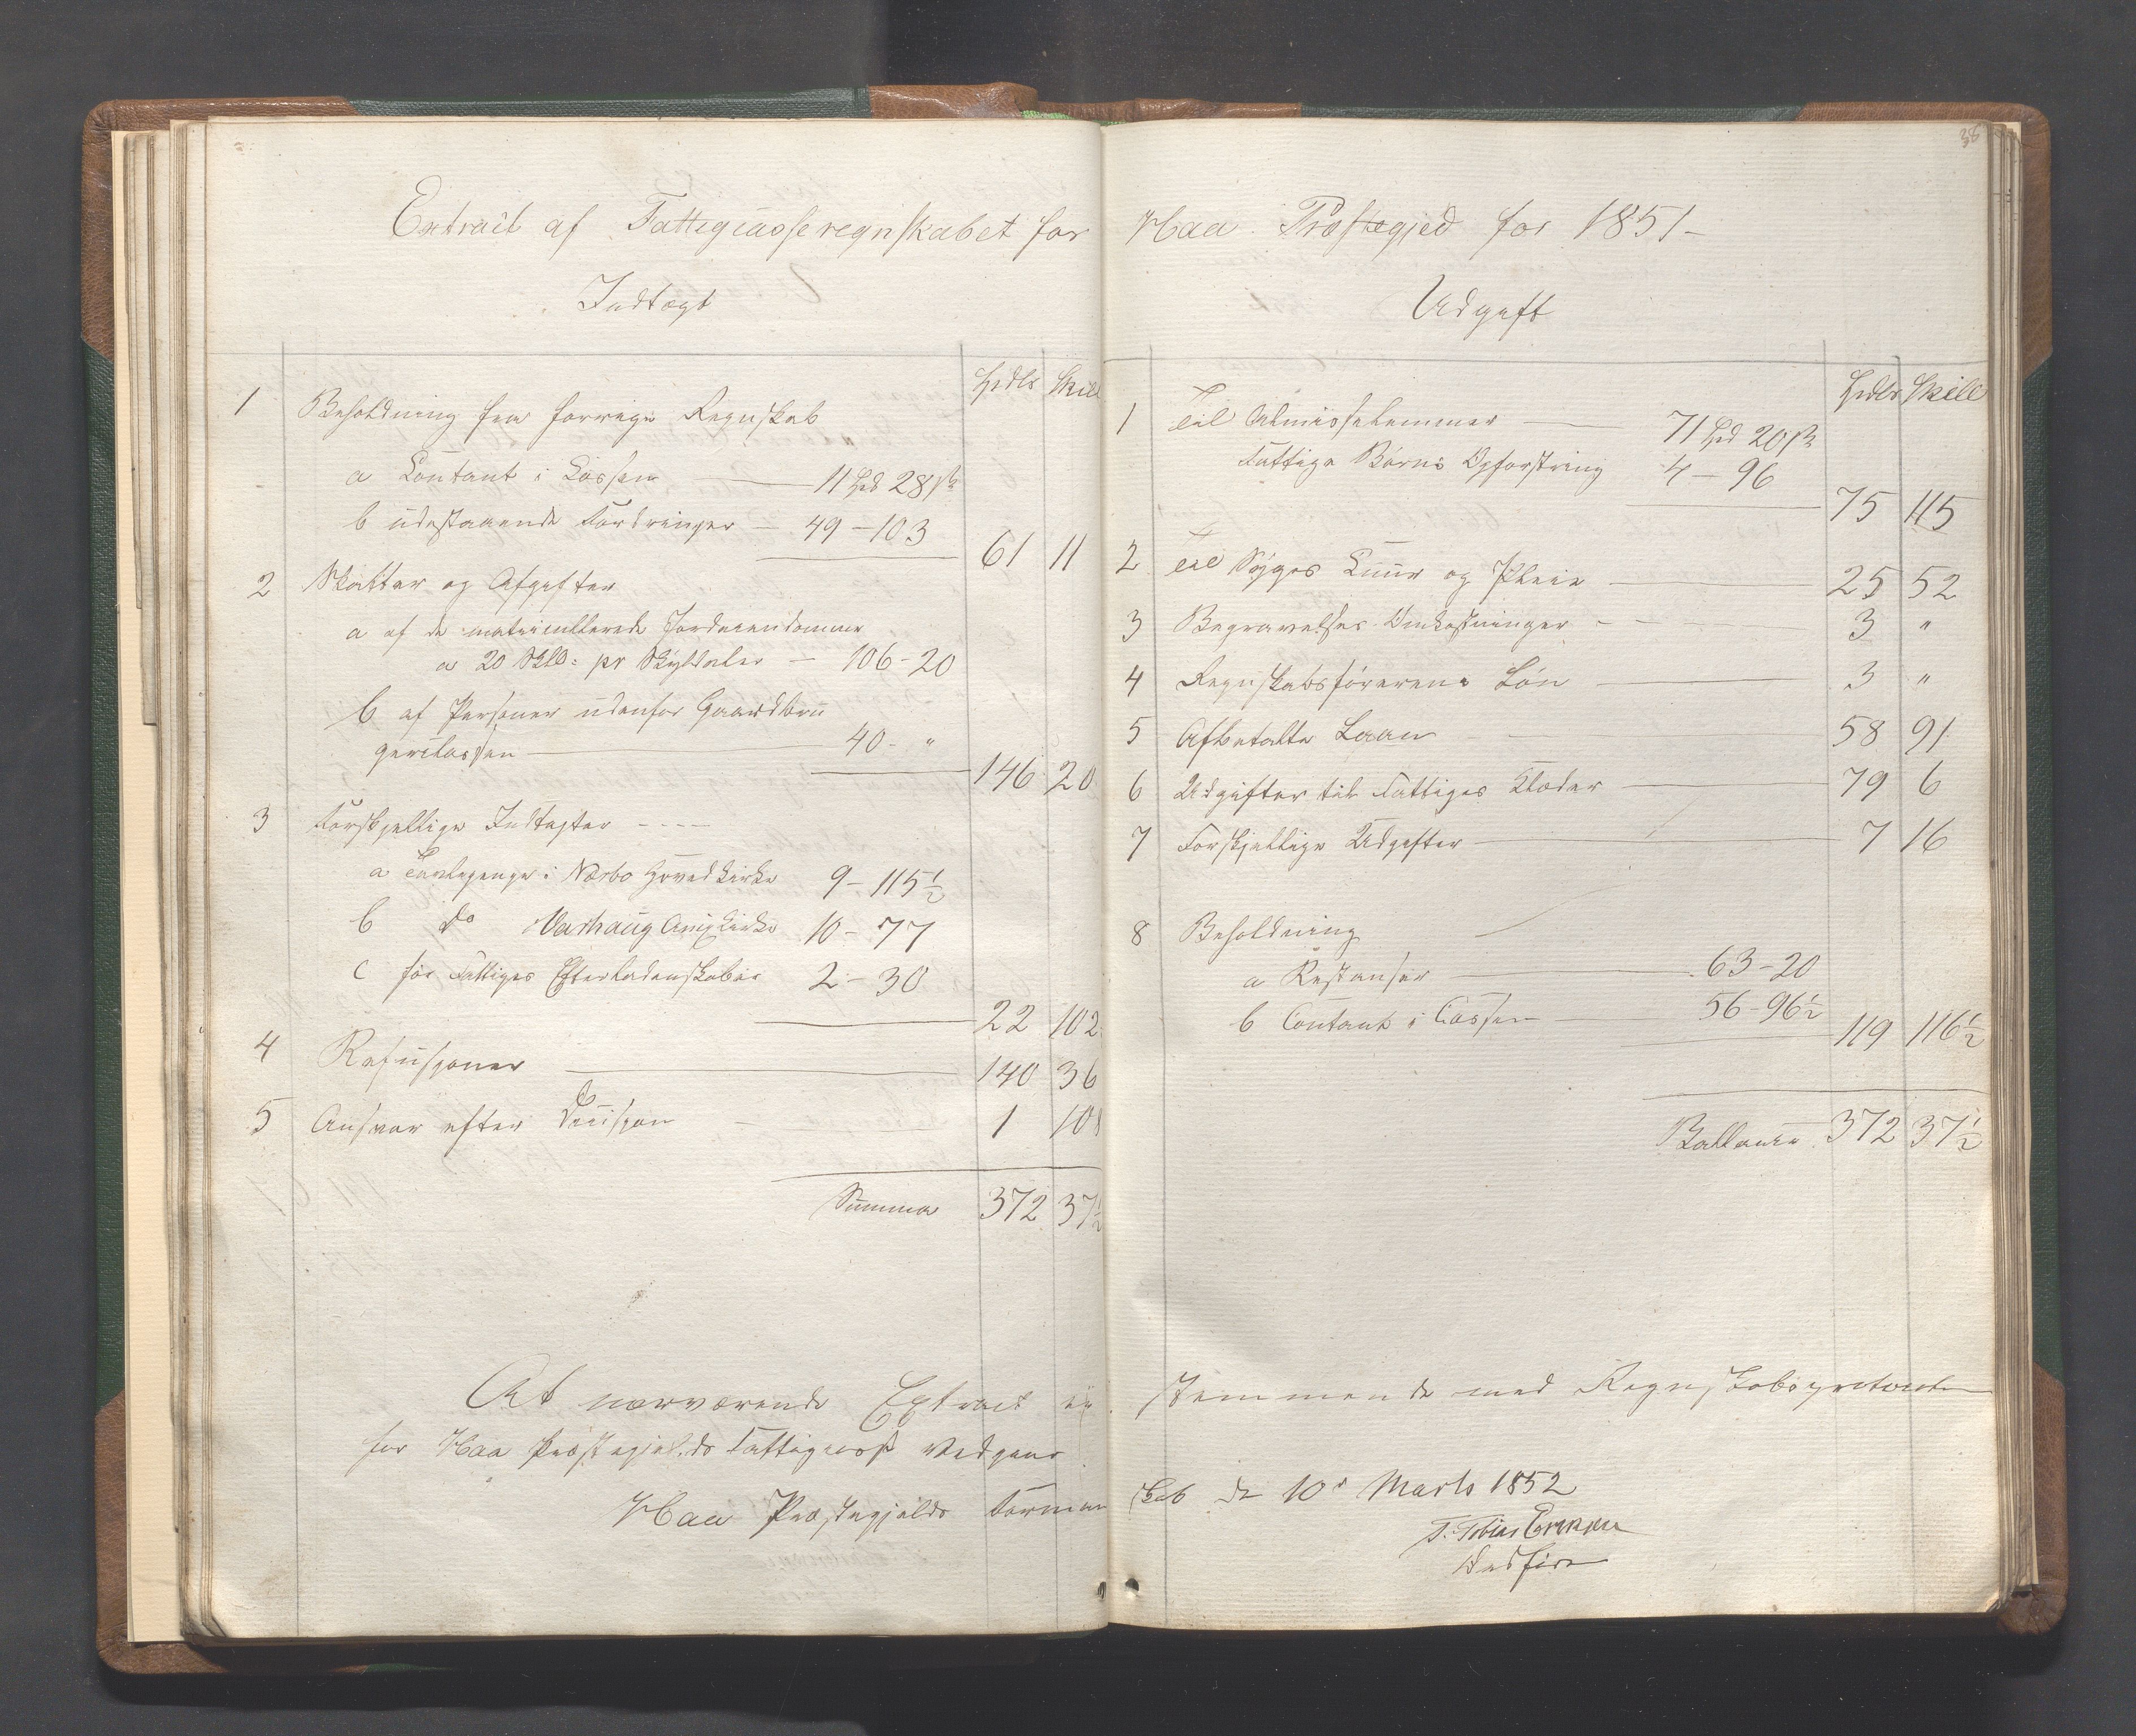 38
Extrait af Fattigcasseregnskabet for Haa Præstegjed for 1851-
Indtægt
Spdlr Skill
1 Beholdning fra forrige Regnskab
a Contant i Cassen 11 Spd 28 ß
b udestaaende Fordringer - 49-103
61 11
2 Skatter og Afgifter
a af de matriculerede Jordeiendomme
a 20 Skill: pr Skylddaler - 106-20
b af Personer udenfor Gaardbru
gerclassen 40- "
146 20
3 Forskjellige Indtægter ----
a Tavlepenge i Nærbø Hovedkirke 9-115½
b do Varhaug Anexkirke 10-77
c for Fattiges Efterladenskaber 2-30
22 102
4 Refusjoner 140 36
5 Ansvar efter Decisjon 1 108
Summa 372 37½
Udgift
Spdlr Skill
1 Til Almisselemmer 71 Spd 20 ß
Fattige Børns Opfostring 4-96
75 115
2 Til Syges Cuur og Pleie 25 52
3 Begravelses Omkostninger 3 "
4 Regnskabsførerens Løn 3 "
5 Afbetalte Laan 58 91
6 Udgifter til Fattiges Klæder 79 6
7 Forskjellige Udgifter 7 16
8 Beholdning
a Restanser 63-20
b Contant i Cassen 56-96½
119 116½
Ballance 372 37½
At nærværende Extract er stemmende med Regnskabsprotocollen
for Haa Præstegjelds Fattigcasse Vedgaar
Haa Præstegjelds Formandskab den 10de Marts 1852
T. Tobias Eriksen